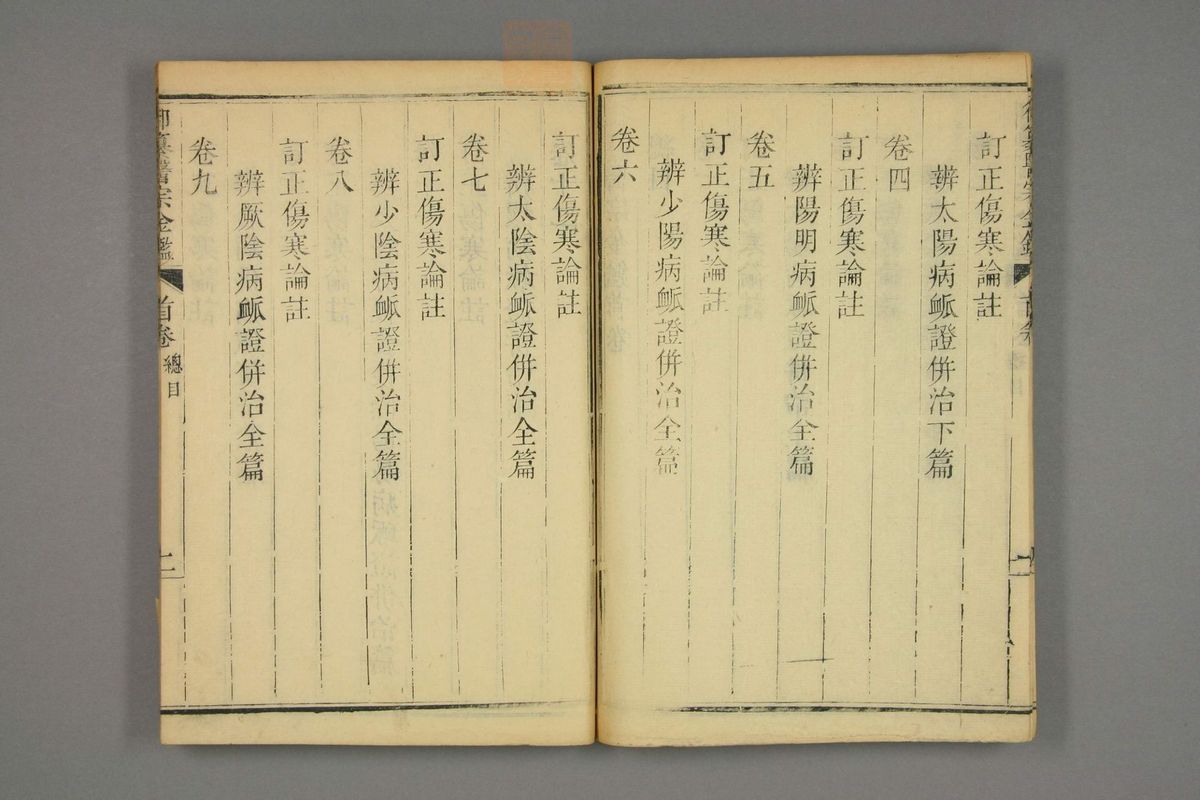 訂正傷寒論註
辨太陽病脈證併治下篇
卷四
訂正傷寒論註
辨陽明病脈證併治全篇
卷五
訂正傷寒論註
辨少陽病脈證併治全篇
卷六
訂正傷寒論註
辨太陰病脈證併治全篇
卷七
訂正傷寒論註
辨少陰病脈證併治全篇
卷八
訂正傷寒論註
辨厥陰病脈證併治全篇
卷九
御纂醫宗金鑑 首卷 總目 二